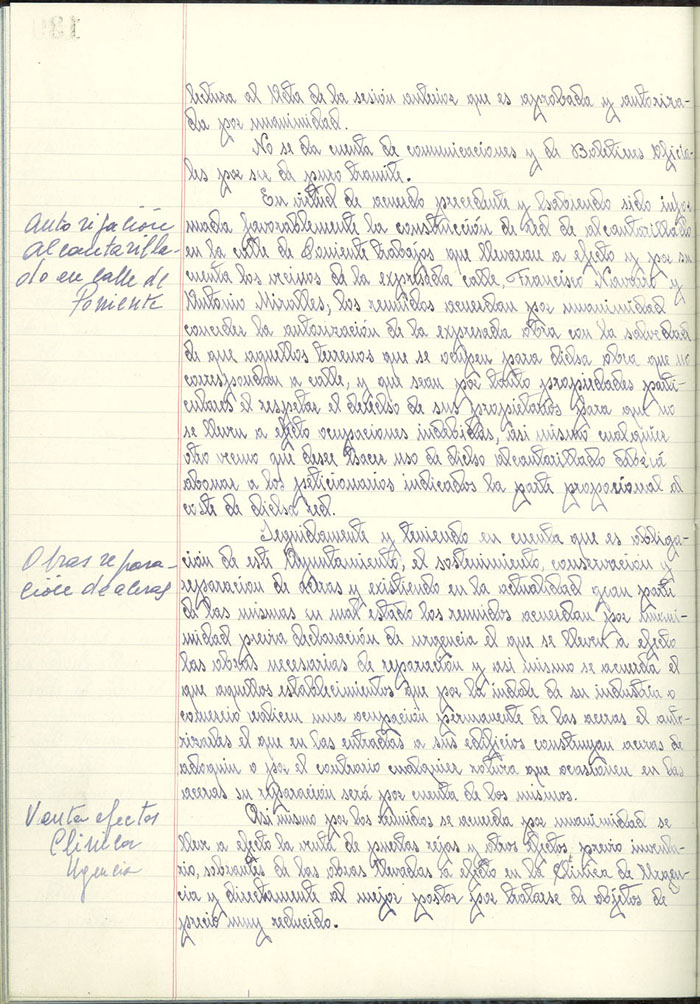 lectura al Acta de la sesión anterior que es aprobada y autoriza-
da por unanimidad.
No se da cuenta de comunicaciones y de Boletines Oficia-
les por ser de puro tramite.
Autorización
Alcantarilla-
do en calle de
Poniente
En virtud de acuerdo precedente y habiendo sido infor
mada favorablemente la construcción de red de alcantarillado
en la calle de Poniente trabajos que llevaran a efecto y por su
cuenta los vecinos de la expresada calle, Francisco Navarro y
Antonio Miralles, los reunidos acuerdan por unanimidad
conceder la autorización de la expresada obra con la salvedad
de que aquellos terrenos que se ocupen para dicha obra que no
correspondan a calle, y que sean por tanto propiedades parti-
culares el respetar el derecho de sus propietarios para que no
se lleven a efecto ocupaciones indebidas, asi mismo cualquier
otro vecino que desee hacer uso de dicho alcantarillado deberá
abonar a los peticionarios indicados la parte proporcional al
coste de dicha red.
Obras repara-
ción de aceras
Seguidamente y teniendo en cuenta que es obliga-
ción de este Ayuntamiento, el sostenimiento, conservación y
reparacion de aceras y existiendo en la actualidad gran parte
de las mismas en mal estado los reunidos acuerdan por unani-
midad previa declaración de urgencia el que se lleven a efecto
las obras necesarias de reparación y asi mismo se acuerda el
que aquellos establecimientos que por la indole de su industria o
comercio realicen una ocupación permanente de las aceras el auto-
rizarles el que en las entradas a sus edificios construyan aceras de
adoquin o por el contrario cualquier rotura que ocasionen en las
aceras su reparación será por cuenta de los mismos.
Venta efectos
Clinica
Urgencia
Asi mismo por los reunidos se acuerda por unanimidad se
lleve a efecto la venta de puertas rejas y otros efectos previo inventa-
rio, sobrantes de las obras llevadas a efecto en la Clinica de Urgen-
cia y directamente al mejor postor por tratarse de objetos de
precio muy reducido.